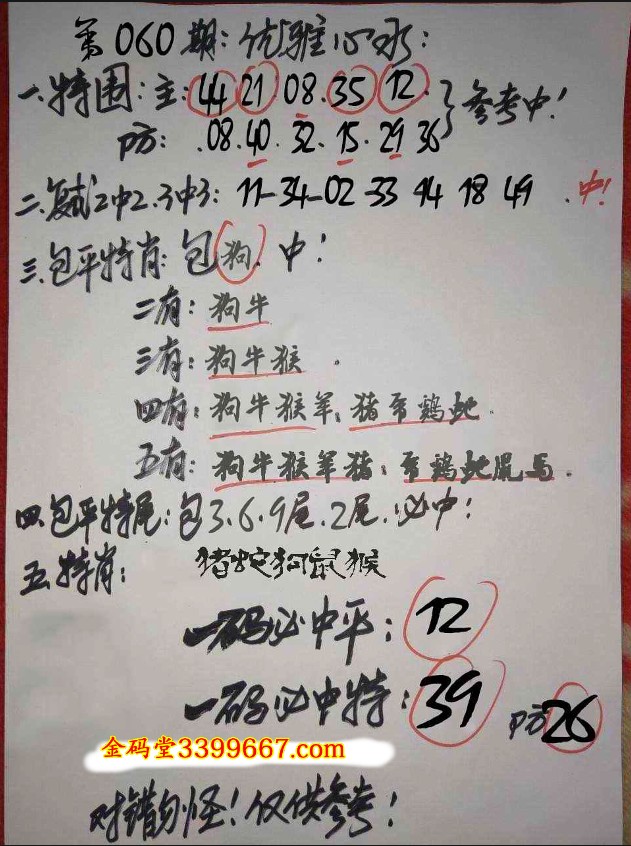 第060期:优雅心水:
一.特围:主:44 21 08.35 12. 参考中!
防:.08.40.32.15.29 36
二.复式2中2.3中3: 11-34-02-33 44 18 49.中!
三.包平特肖:包狗.中!
二有:狗牛
三有:狗牛猴.
四有:狗牛猴羊:猪帝鸡蛇.
五有:狗牛猴羊猪:帝鸡蛇鼠马.
四.包平特尾:包3.6.9尾.2尾.必中!
五.特肖: 猪蛇狗鼠猴
一码必中平: 12
一码必中特: 39 防26
金码堂3399667.com
对错勿怪!仅供参考!